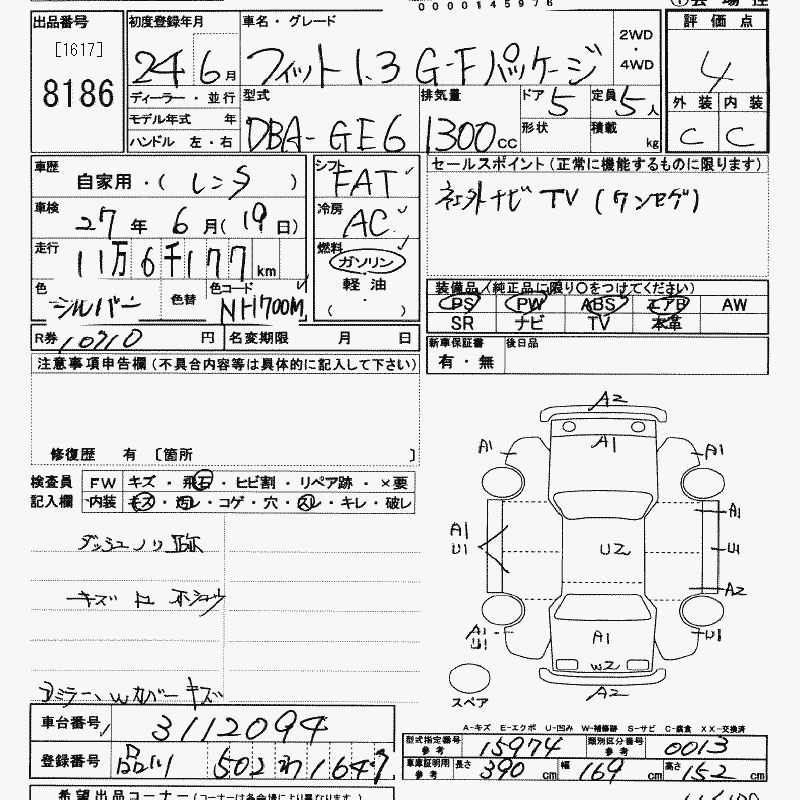 0000145976
出品番号
[1617]
8186
初度登録年月
24 6月
車名・グレード
フィット1.3 G-Fパッケージ
2WD
・
4WD
評価点
4
外装 内装
C C
ディーラー・並行
モデル年式 年
ハンドル 左・右
型式
DBA-GE6
排気量
1300cc
ドア 5
定員 5人
形状
積載 kg
車歴
自家用・(レンタ)
車検
27年6月(19日)
走行
11万6千177km
色
シルバー
色替
色コード
NH700M
シフト
FAT
冷房
AC
燃料
ガソリン
軽油
・
( )
セールスポイント(正常に機能するものに限ります)
社外ナビ TV (ワンセグ)
装備品(純正品に限り○をつけてください)
PS PW ABS エアB AW
SR ナビ TV 本革
R券 10710円
名変期限 月 日
新車保証書
有・無
後日品
注意事項申告欄(不具合内容等は具体的に記入して下さい)
修復歴 有 [箇所 ]
検査員
記入欄
FW キズ・飛石・ヒビ割・リペア跡・×要
内装 キズ・汚レ・コゲ・穴・スレ・キレ・破レ
ダッシュノリ跡
キズ
ミラー、Wカバーキズ
A2
A1
A1 A1
A1
U1
A1
U2
U1
A2
A1
U1
A1
U1
W2
A2
スペア
A-キズ E-エクボ U-凹み W-補修跡 S-サビ C-腐食 XX-交換済
車台番号
3112094
登録番号
品川 502 わ 1647
型式指定番号
参考
15974
類別区分番号
参考
0013
車庫証明用
参考
長さ 390cm
幅 169cm
高さ 152cm
希望出品コーナー(コーナーは各会場により異なります)